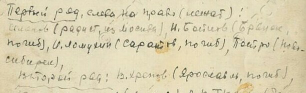 Первый ряд, слева на право (лежат):
(радист, из Москвы), Н. Бойков (Брянск,
погиб), И. Ломцкий (Саратов, погиб), Пастро (Ново-
сибирск),
Второй ряд: В. Арапов (Ярославль, погиб),